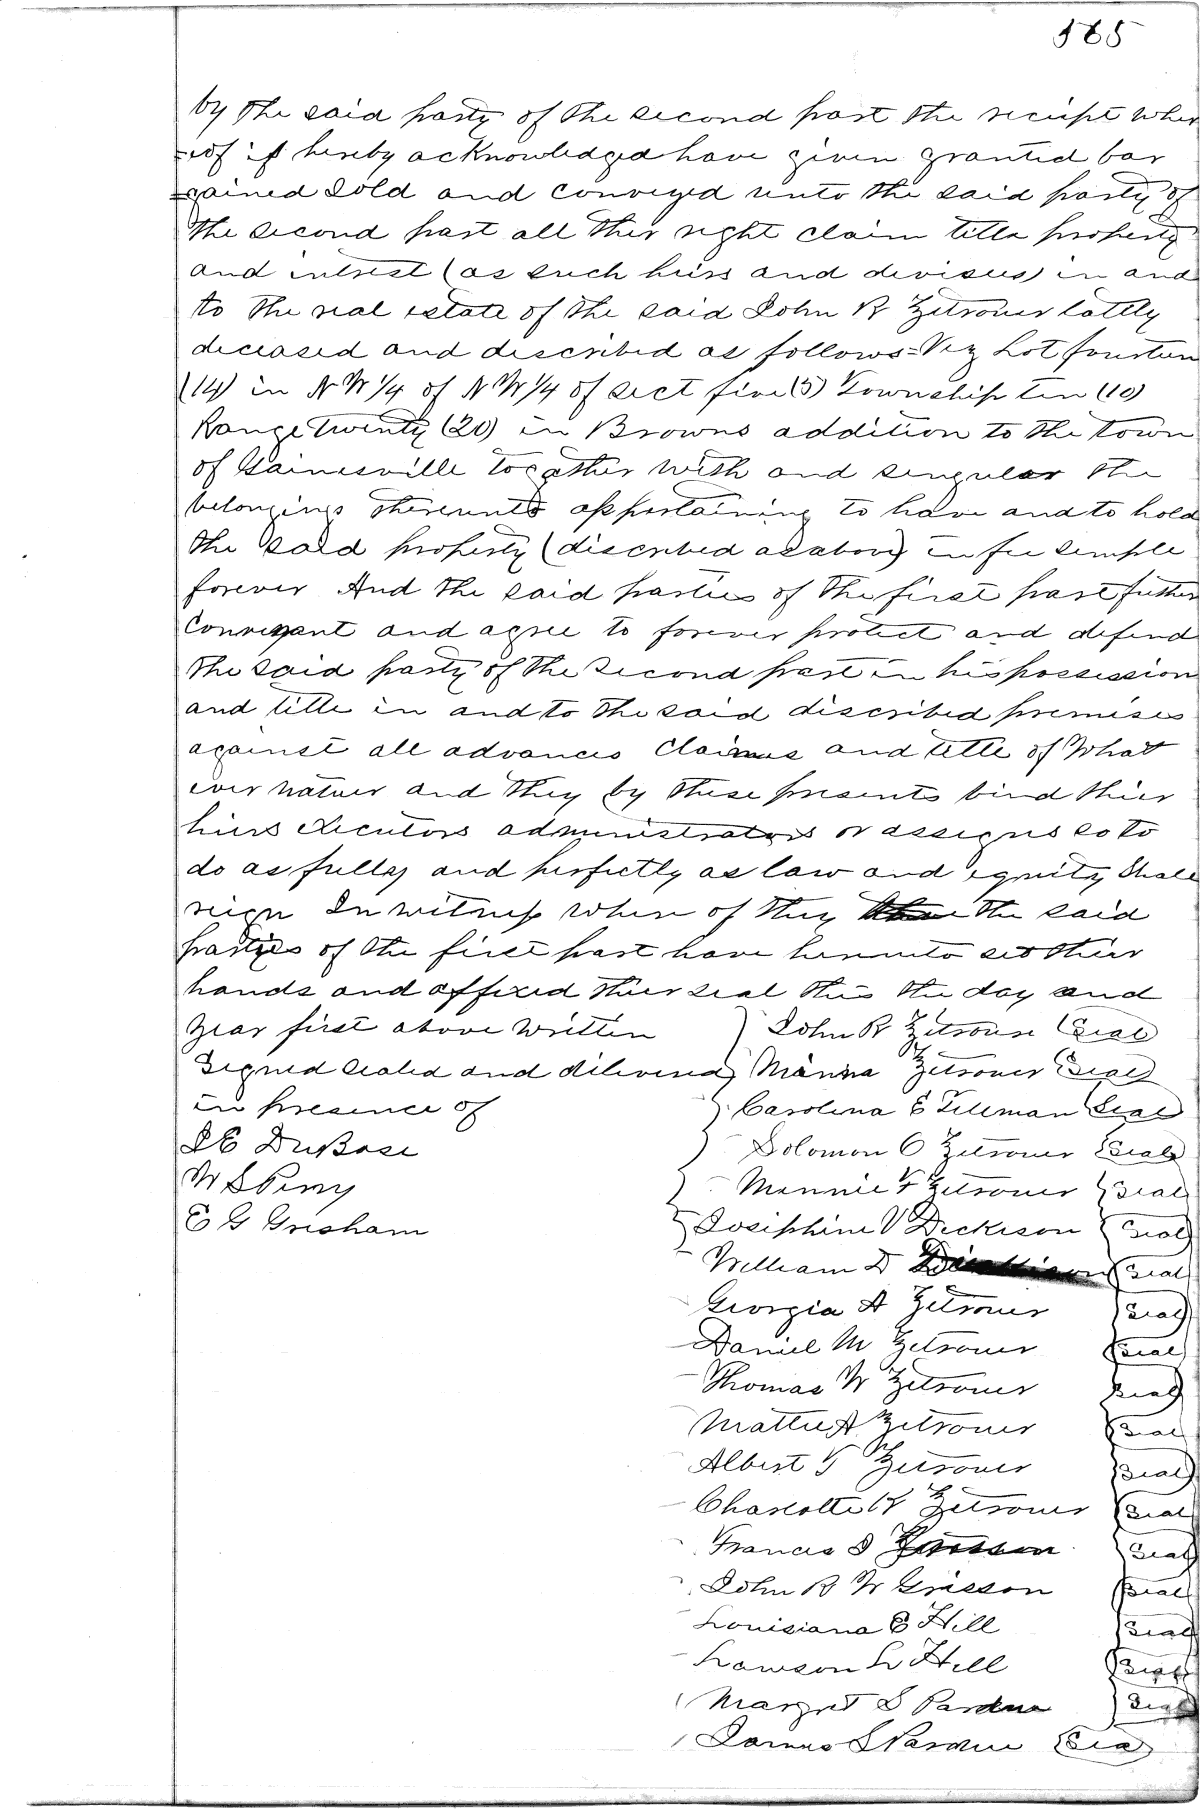 565
by the said party of the second part the reciept wher
=eof is hereby acknowledged have given granted bar
=gained Sold and conveyed unto the said party of
the second part all thier right claim title property
and intrest (as such heirs and devisees) in and
to the real estate of the said John R Zetrouer lattly
deceased and described as follows=Viz Lot fourteen
(14) in N W 1/4 of N W 1/4 of sect five (5) Township ten (10)
Range Twenty (20) in Browns addition to the town
of Gainesville together with and singular the
belongings thereunto appertaining to have and to hold
the said property (discribed as above) in fee simple
forever And the said parties of the first part futher
Convenant and agree to forever protect and defend
the said party of the second part in his possession
and title in and to the said discribed premises
against all advances Claimes and title of What
ever natuer and they by these presents bind thier
heirs executors administrators or assigns so to
do as fully and perfectly as law and equity Shall
reign In witness where of they the said
parties of the first part have hereunto set thier
hands and affixed thier seal this the day and
year first above written } John R Zetrouer (Seal)
Signed sealed and delivered } Minna Zetrouer (Seal)
in presence of } Carolina E Tileman (Seal)
I E DuBose } Solomon O Zetrouer (Seal)
W S Perry } Minnie F Zetrouer (Seal
E G Grisham } Josiphine V Dickison (Seal)
William D (Seal
Georgia A Zetrouer (Seal)
Daniel M Zetrouer (Seal)
Thomas W Zetrouer (Seal)
Mattie A Zetrouer (Seal
Albert T Zetrouer (Seal)
Charlotte K Zetrouer (Seal
Francis I (Seal)
John R W Grisson (Seal
Louisiana E Hill (Seal
Lawson L Hill (Seal
Margret S Pardue (Seal
James S Pardue (Sea)